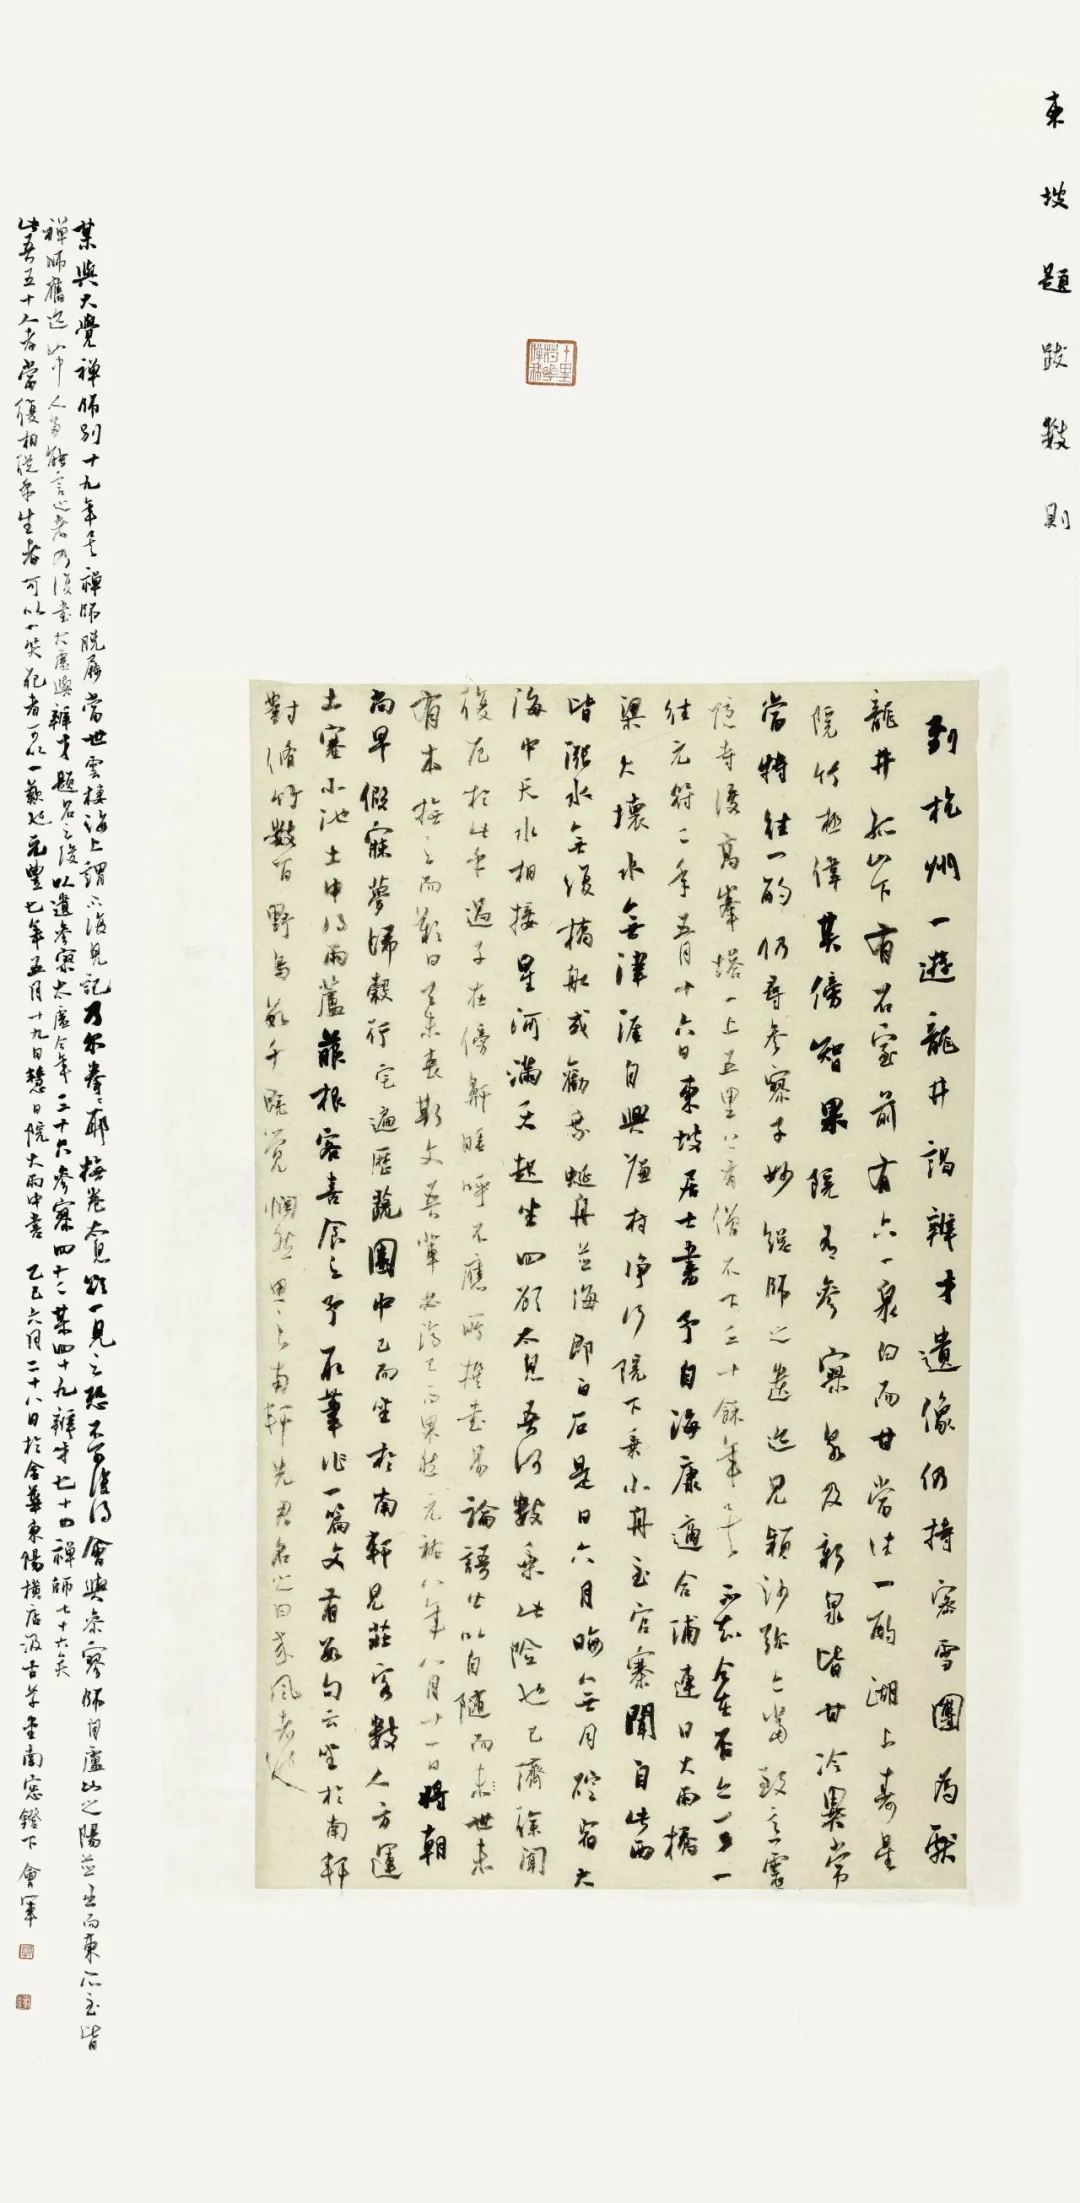 東坡題跋數則
到杭州一遊龍井謁辯才遺像仍持密雪團為獻
龍井孤山下有石室前有六一泉白而甘當往一酌湖上壽星
院竹極偉其傍智果院有參寥泉及新泉皆甘冷異常
當特往一酌仍尋參寥子妙總師之遺迹見穎沙彌亦當致意靈
隱寺後高峯塔一上五里上有僧不下三十餘年矣不知今在否亦可一
往元符二年五月十六日東坡居士書予自海康適合浦連日大雨橋
梁大壞水無津涯自興廉村淨行院下乘小舟至官寨聞自此西
皆漲水無復橋船或勸乘蜑舟並海即白石是日六月晦無月碇宿大
海中天水相接星河滿天起坐四顧太息吾何數乘此險也已濟徐聞
復厄於此乎過子在傍鼾睡呼不應所撰書易論語皆以自隨而世未
有本撫之而歎曰天未喪斯文吾輩必濟已而果然元祐八年八月十一日將朝
尚早假寐夢歸縠行宅遍歷蔬園中已而坐於南軒見莊客數人方運
土塞小池土中得兩蘆菔根客喜食之予取筆作一篇文有數句云坐於南軒
對脩竹數百野鳥數千既覺惘然思之南軒先君名之曰來風者也
某與大覺禪師別十九年矣禪師脫屣當世雲棲海上謂不復見記乃爾拳拳耶撫卷太息欲一見之恐不可復得會與參寥師自廬山之陽並出而東所至皆
禪師舊迹山中人多能言之者乃復書太虛與辯才題名之後以遺參寥太虛今年三十六參寥四十二某四十九辯才七十四禪師七十六矣
此吾五十人者當復相從乎生者可以一笑死者可以一歎也元豐七年五月十九日慧日院大雨中書 乙巳六月二十八日於金華東陽橫店汲古草堂南窗鐙下 會軍